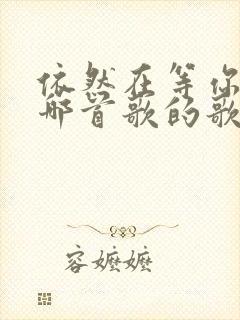 依然在等你
那首歌的歌
容嬷嬷